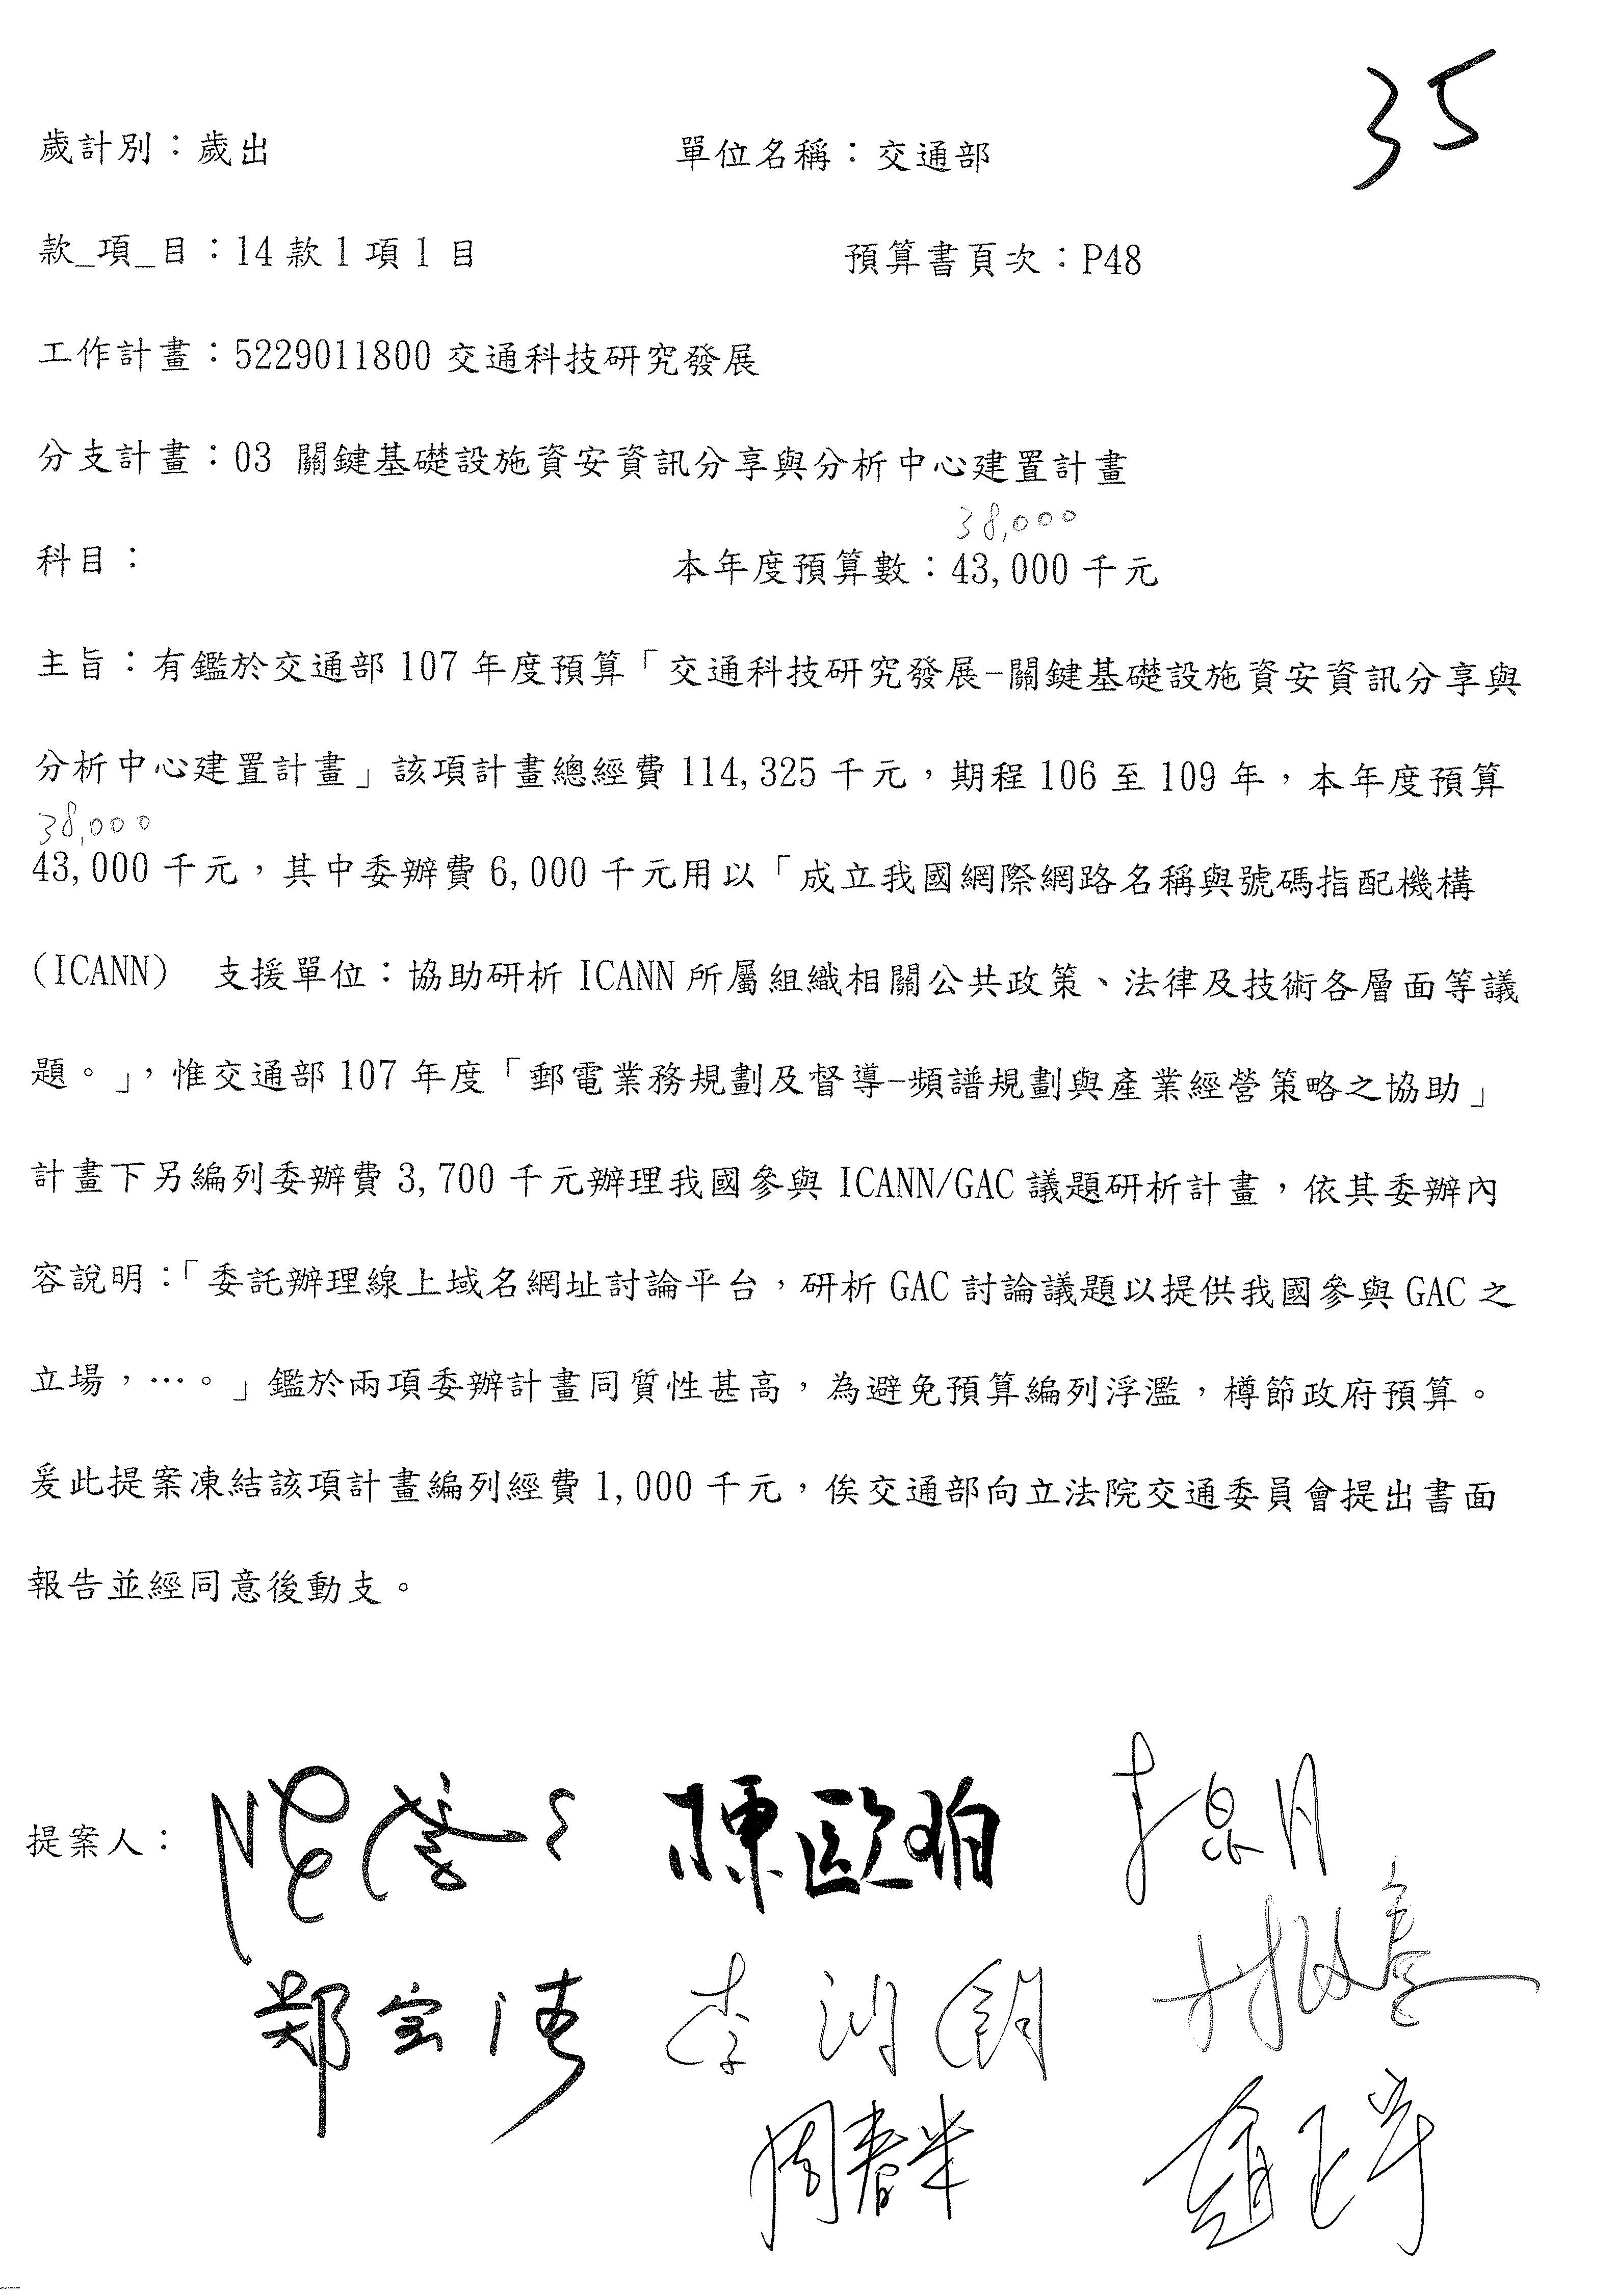 35
歲計別：歲出 單位名稱：交通部
款_項_目：14款1項1目 預算書頁次：P48
工作計畫：5229011800交通科技研究發展
分支計畫：03 關鍵基礎設施資安資訊分享與分析中心建置計畫
38,000
科目： 本年度預算數：43,000千元
主旨：有鑑於交通部107年度預算「交通科技研究發展-關鍵基礎設施資安資訊分享與
分析中心建置計畫」該項計畫總經費114,325千元，期程106至109年，本年度預算
38,000
43,000千元，其中委辦費6,000千元用以「成立我國網際網路名稱與號碼指配機構
(ICANN) 支援單位：協助研析ICANN所屬組織相關公共政策、法律及技術各層面等議
題。」，惟交通部107年度「郵電業務規劃及督導-頻譜規劃與產業經營策略之協助」
計畫下另編列委辦費3,700千元辦理我國參與ICANN/GAC議題研析計畫，依其委辦內
容說明：「委託辦理線上域名網址討論平台，研析GAC討論議題以提供我國參與GAC之
立場，…。」鑑於兩項委辦計畫同質性甚高，為避免預算編列浮濫，樽節政府預算。
爰此提案凍結該項計畫編列經費1,000千元，俟交通部向立法院交通委員會提出書面
報告並經同意後動支。
提案人： 陳歐珀
鄭宝清